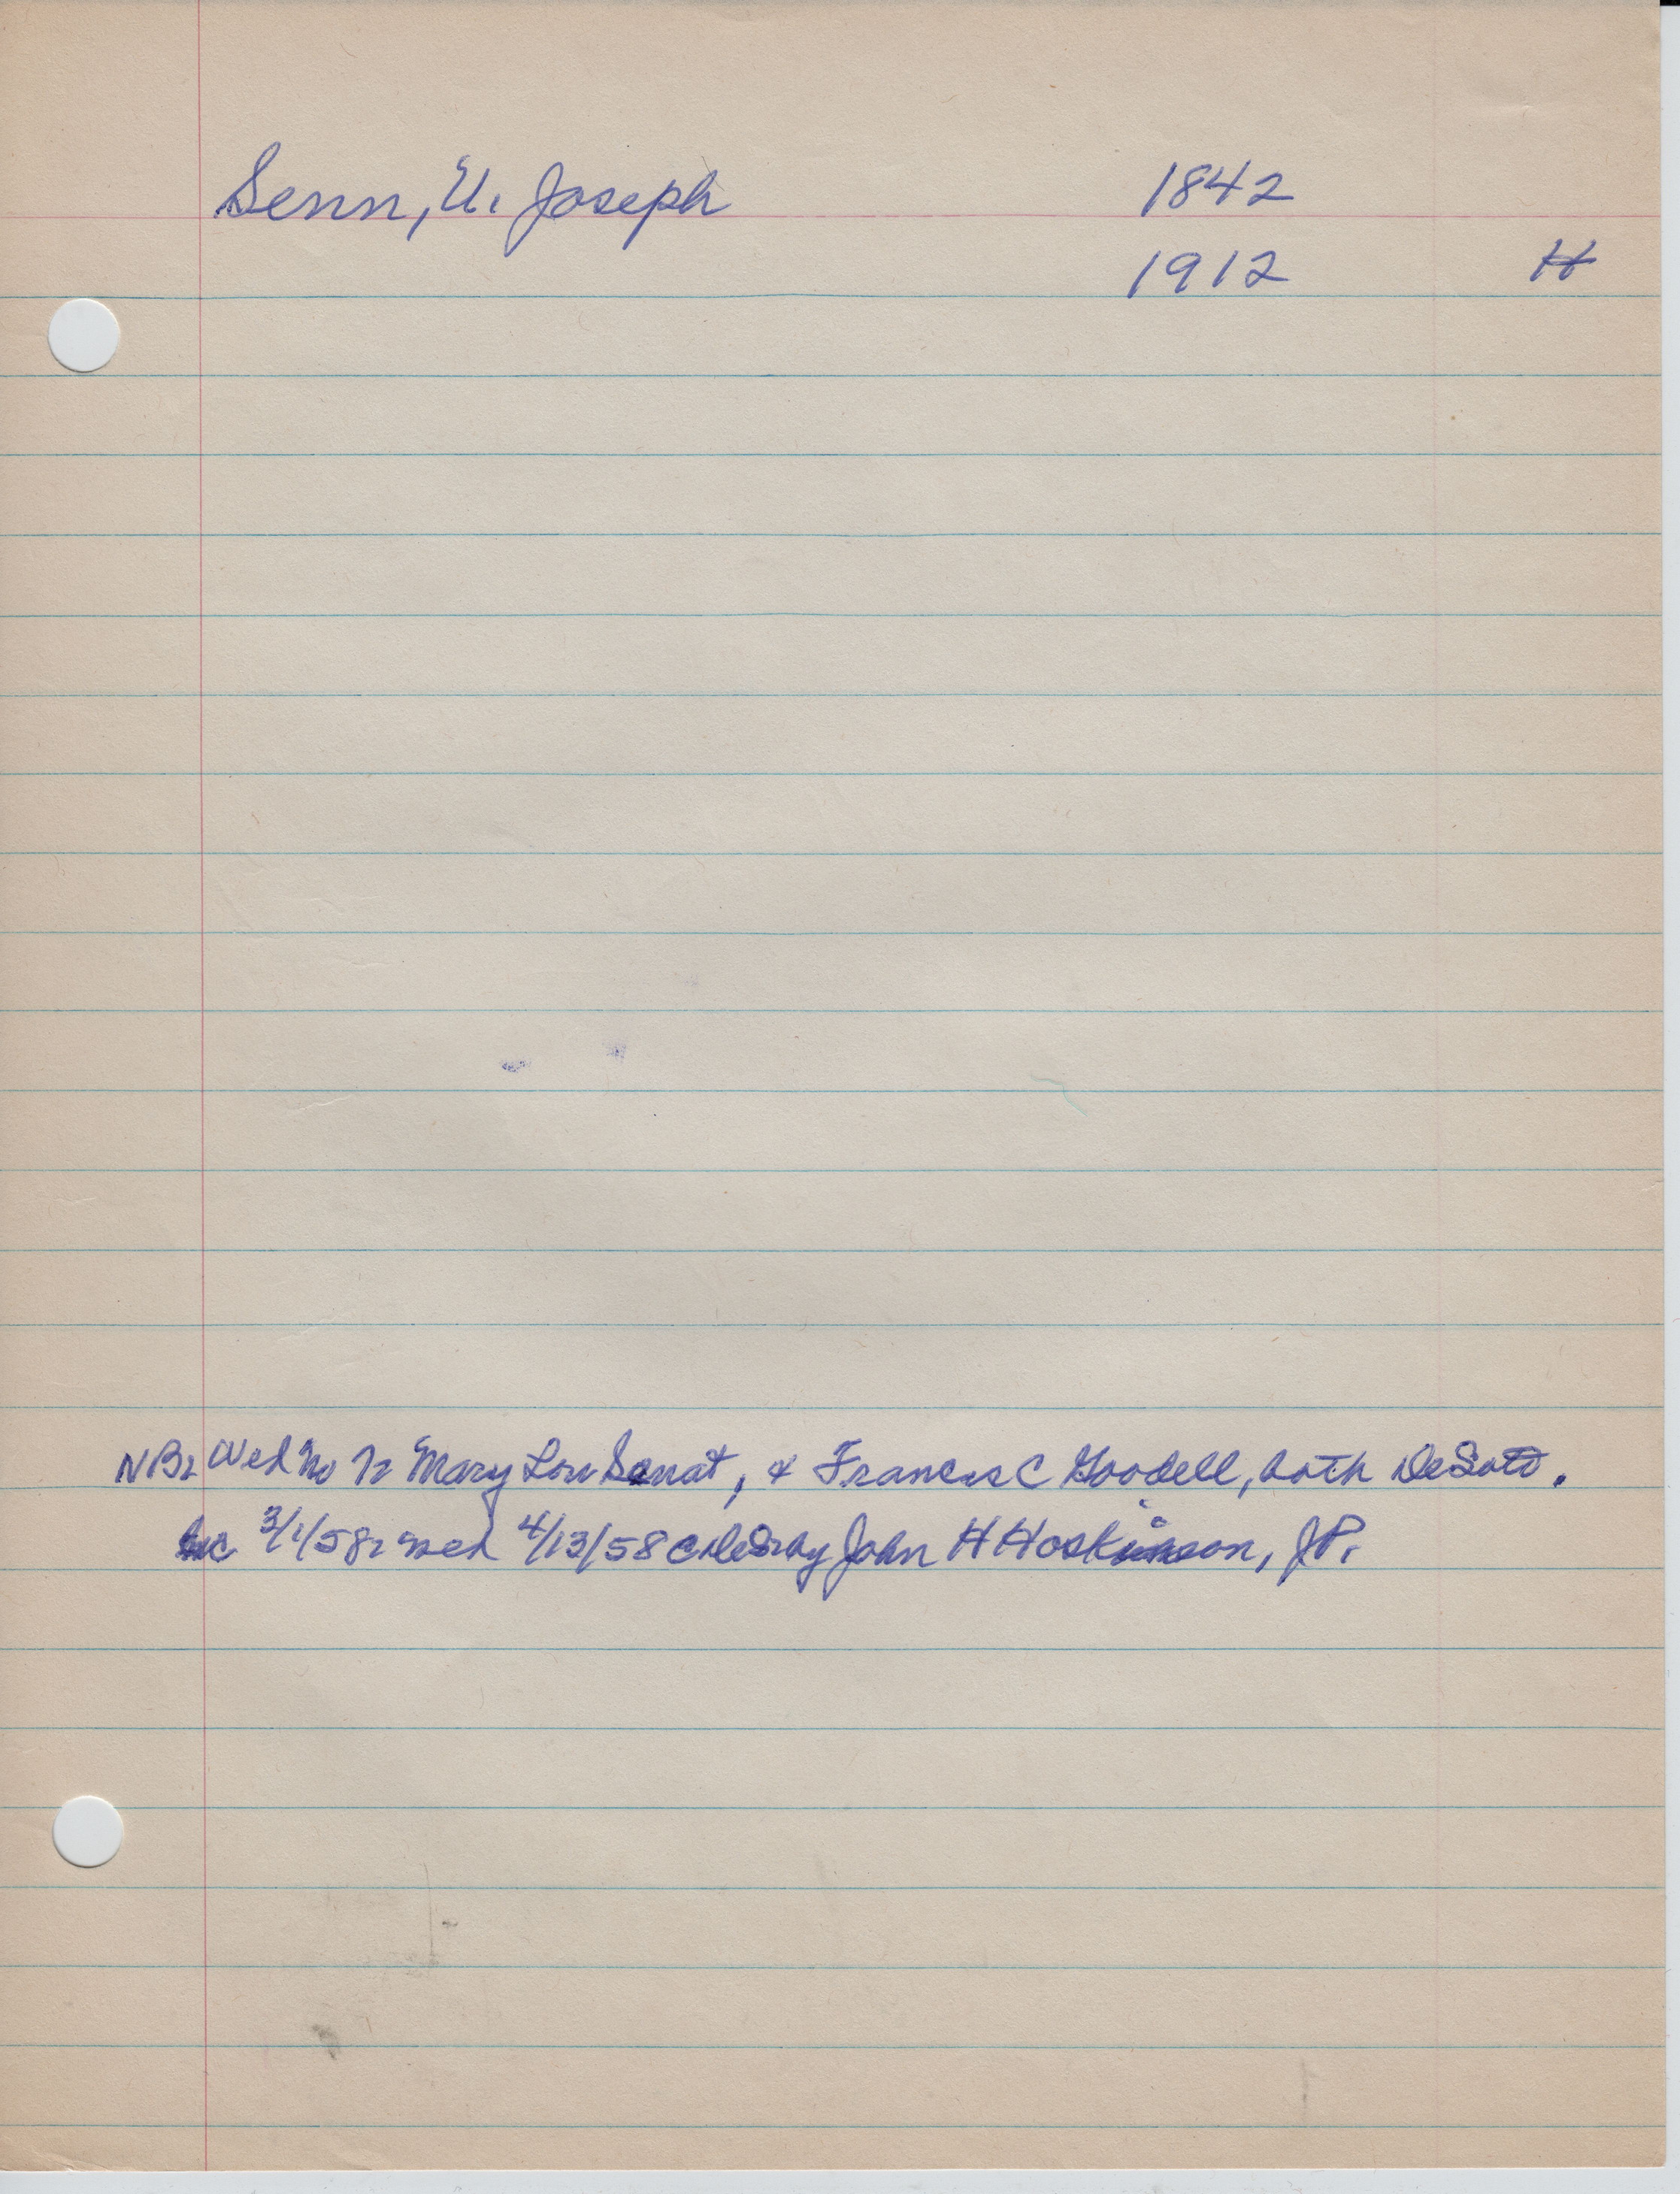 Senn, U. Joseph 1842
1912 H
NB: Wed No 72 Mary Lou Senat, & Francis C Goodell, both DeSoto.
Lic 3/1/58: wed 4/13/58 by John H Hoskinson, JP.